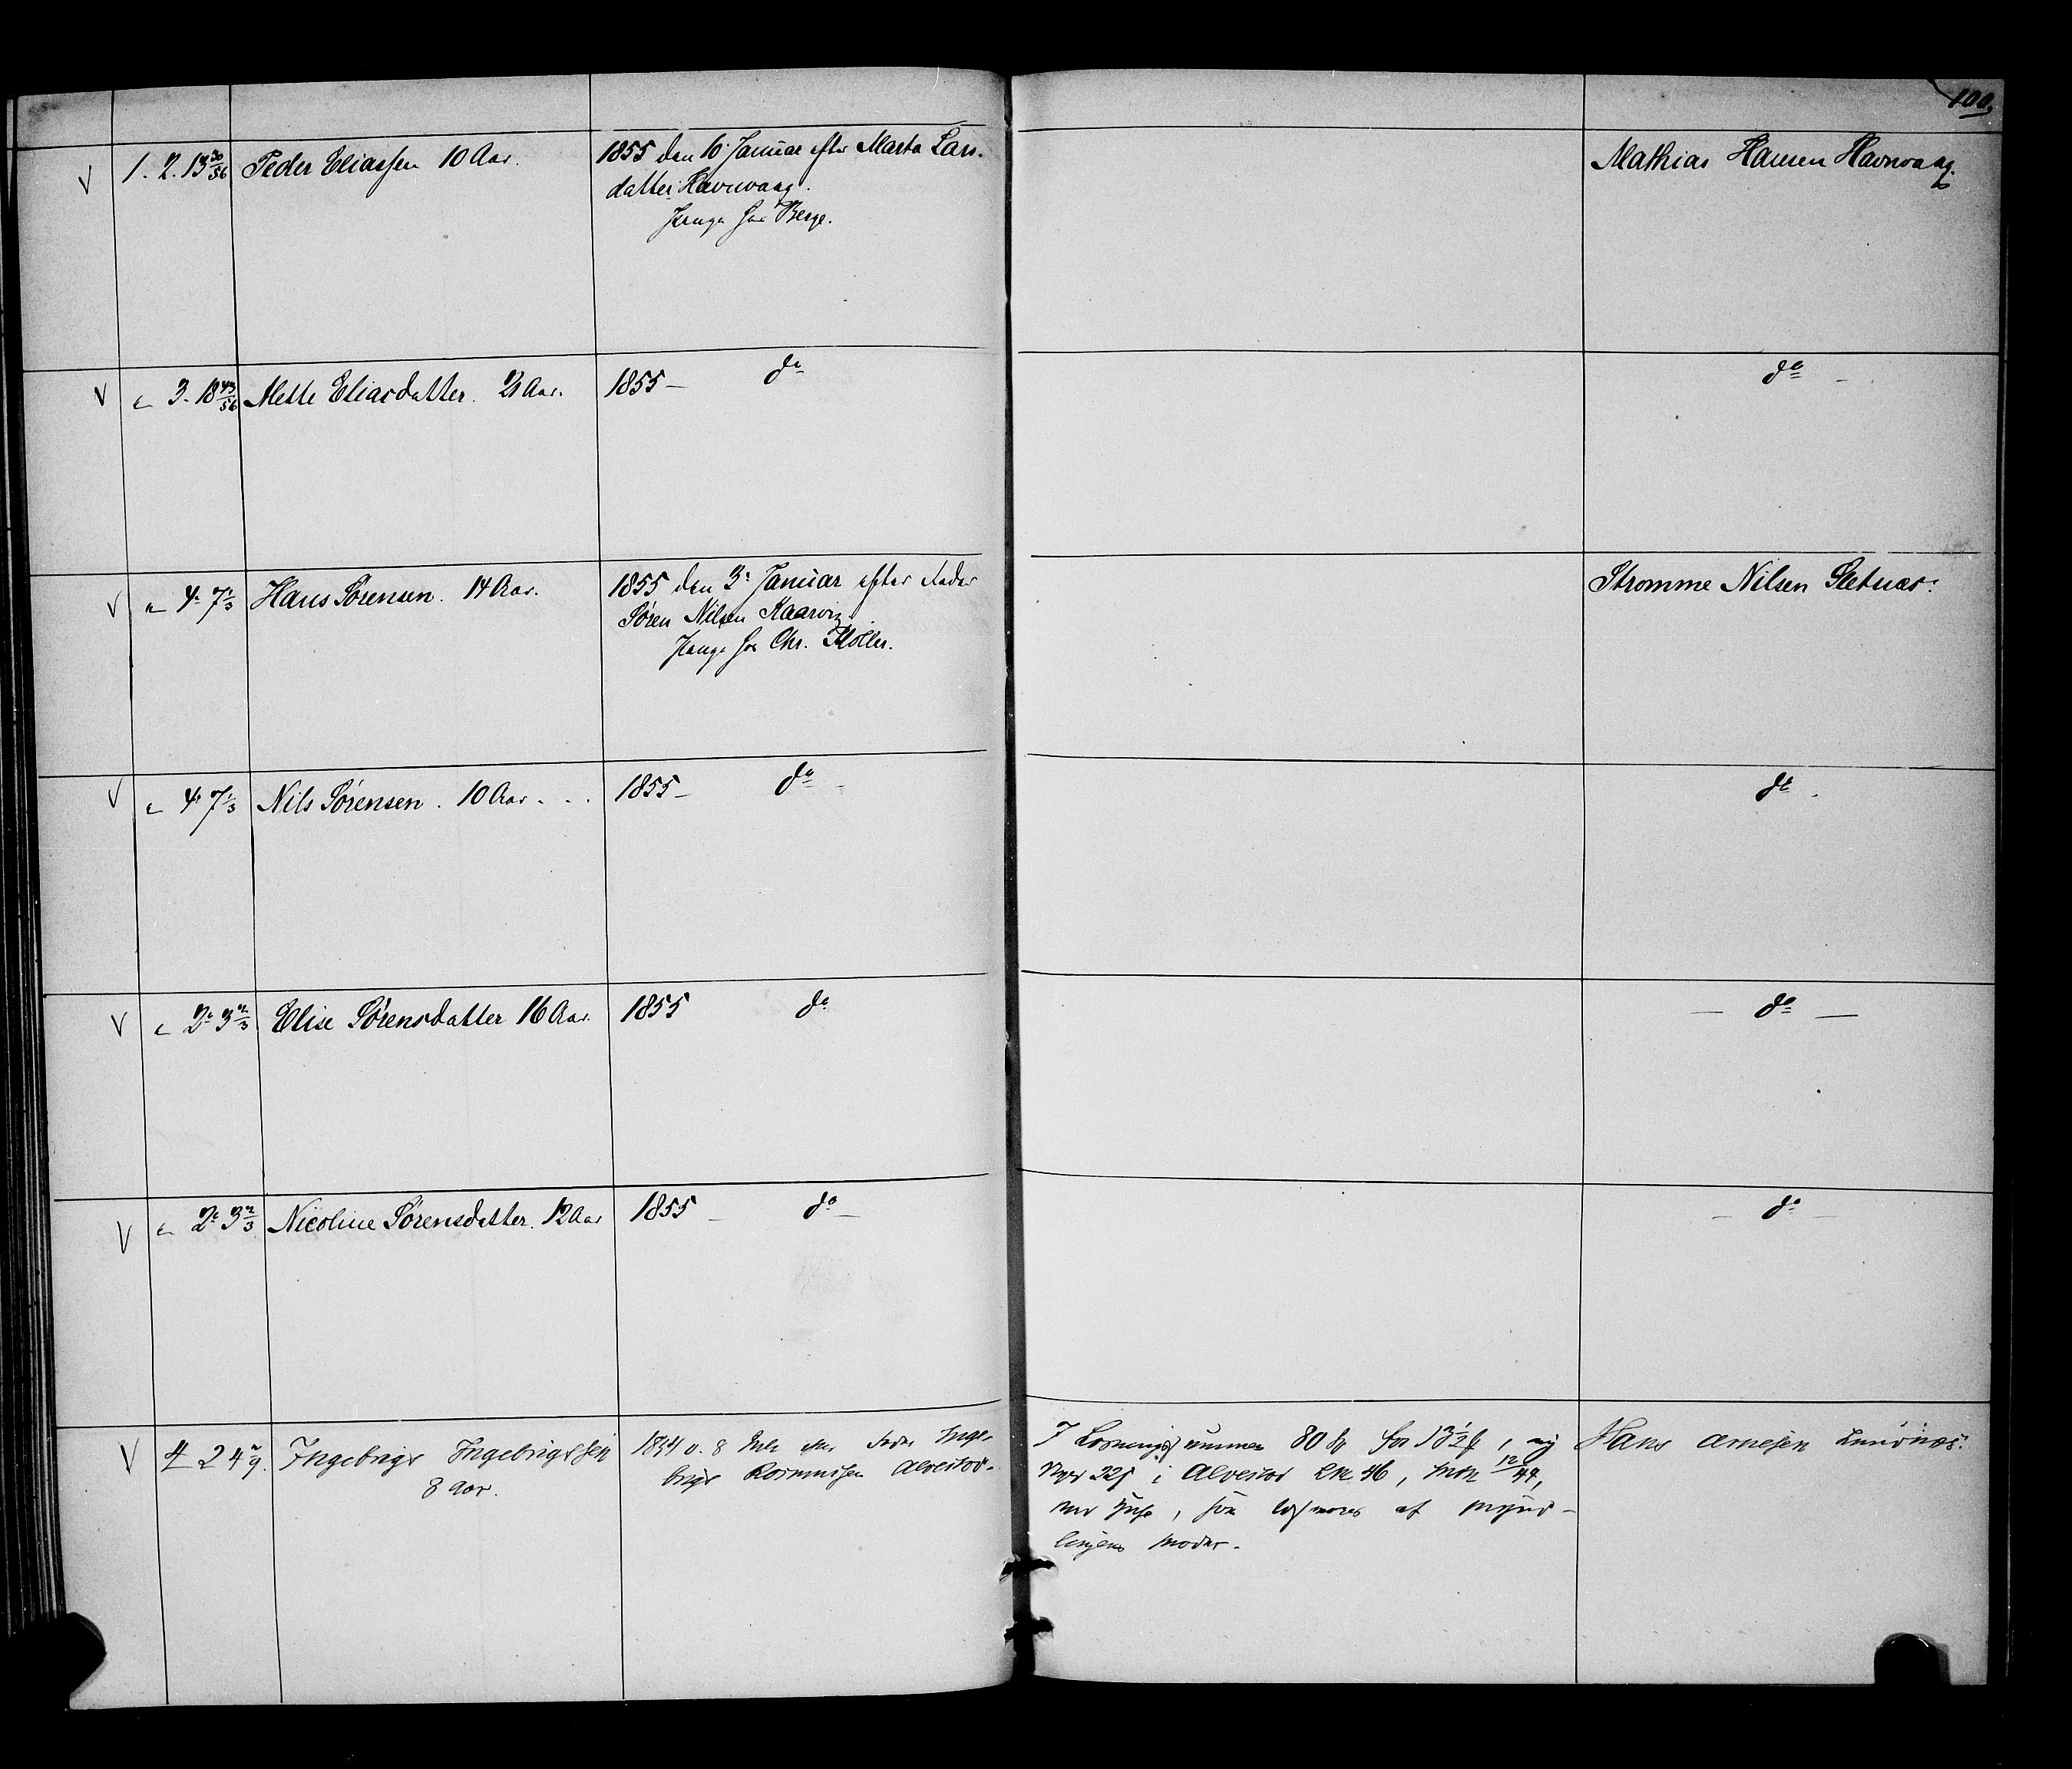 100.
V 1. 2. 13 30/56 Peder Eliassen 10 Aar. 1855 den 16 Januar efter Marta Lars-
datter Havnvaag.
Penge hos Berge.
Mathias Hansen Havnvaag.
V " 3. 18 43/56 Mette Eliasdatter. 21 Aar. 1855 – do
do –
V " 4. 7 1/3 Hans Sørensen. 14 Aar. 1855 den 3. Januar efter Fader
Søren Nilsen Kaarvig
Penge hos Chr. Møller.
Strømme Nilsen Sletnæs.
V " 4. 7 1/3 Nils Sørensen. 10 Aar. . . 1855 – do –
do .
V " 2. 3 2/3 Elise Sørensdatter 16 Aar. 1855 do
– do –
V " 2. 3 2/3 Nicoline Sørensdatter. 12 Aar 1855 – do –
– do –
V 4 2 4 2/9. Ingebrigt Ingebrigtsen
8 Aar.
1854 d. 8 efter Fader Inge-
brigt Rasmussen Alvestad.
I 80 for 13 1/2 ,
225 i Alvestad 46, 12/44,
, som af Mynd-
lingens Moder.
Hans Arnesen